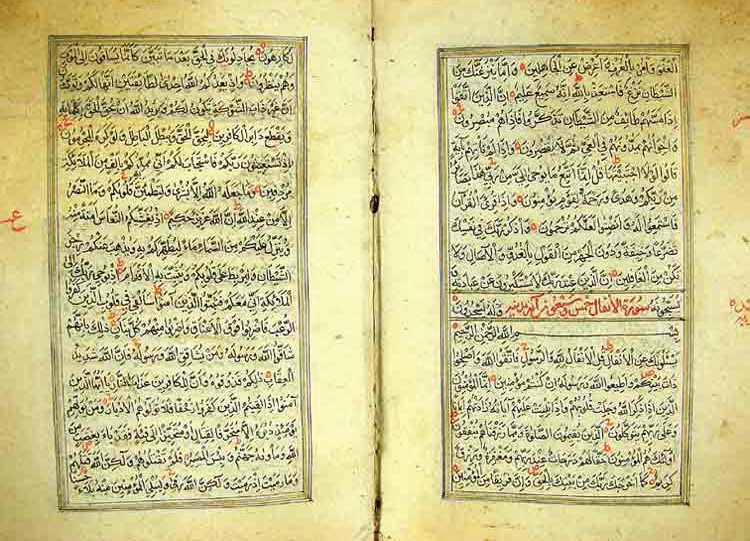 العفو وأمر بالعرف وأعرض عن الجاهلين وإما ينزغنك من
الشيطان نزغ فاستعذ بالله إنه سميع عليم إن الذين اتقوا
إذا مسهم طائف من الشيطان تذكروا فإذا هم مبصرون
وإخوانهم يمدونهم في الغي ثم لا يقصرون وإذا لم تأتهم بآية
قالوا لولا اجتبيتها قل إنما أتبع ما يوحى إلي من ربي هذا بصائر
من ربكم وهدى ورحمة لقوم يؤمنون وإذا قرئ القرآن
فاستمعوا له وأنصتوا لعلكم ترحمون واذكر ربك في نفسك
تضرعا وخيفة ودون الجهر من القول بالغدو والآصال ولا
تكن من الغافلين إن الذين عند ربك لا يستكبرون عن عبادته
ويسبحونه سورة الأنفال خمس وسبعون آية مدنية وله يسجدون
بسم الله الرحمن الرحيم
يسئلونك عن الأنفال قل الأنفال لله والرسول فاتقوا الله وأصلحوا
ذات بينكم وأطيعوا الله ورسوله إن كنتم مؤمنين إنما المؤمنون
الذين إذا ذكر الله وجلت قلوبهم وإذا تليت عليهم آياته زادتهم إيمانا
وعلى ربهم يتوكلون الذين يقيمون الصلوة ومما رزقناهم ينفقون
أولئك هم المؤمنون حقا لهم درجات عند ربهم ومغفرة ورزق
كريم كما أخرجك ربك من بيتك بالحق وإن فريقا من المؤمنين
لكارهون يجادلونك في الحق بعد ما تبين كأنما يساقون إلى الموت
وهم ينظرون وإذ يعدكم الله إحدى الطائفتين أنها لكم وتودون
أن غير ذات الشوكة تكون لكم ويريد الله أن يحق الحق بكلماته
ويقطع دابر الكافرين ليحق الحق ويبطل الباطل ولو كره المجرمون
إذ تستغيثون ربكم فاستجاب لكم أني ممدكم بألف من الملائكة
مردفين وما جعله الله إلا بشرى ولتطمئن به قلوبكم وما النصر
إلا من عند الله إن الله عزيز حكيم إذ يغشيكم النعاس أمنة منه
وينزل عليكم من السماء ماء ليطهركم به ويذهب عنكم رجز
الشيطان وليربط على قلوبكم ويثبت به الأقدام إذ يوحي ربك إلى
الملائكة أني معكم فثبتوا الذين آمنوا سألقي في قلوب الذين كفروا
الرعب فاضربوا فوق الأعناق واضربوا منهم كل بنان ذلك بأنهم
شاقوا الله ورسوله ومن يشاقق الله ورسوله فإن الله شديد
العقاب ذلكم فذوقوه وأن للكافرين عذاب النار يا أيها الذين
آمنوا إذا لقيتم الذين كفروا زحفا فلا تولوهم الأدبار ومن يولهم
يومئذ دبره إلا متحرفا لقتال أو متحيزا إلى فئة فقد باء بغضب من
الله ومأواه جهنم وبئس المصير فلم تقتلوهم ولكن الله قتلهم
وما رميت إذ رميت ولكن الله رمى وليبلي المؤمنين منه بلاء
ع